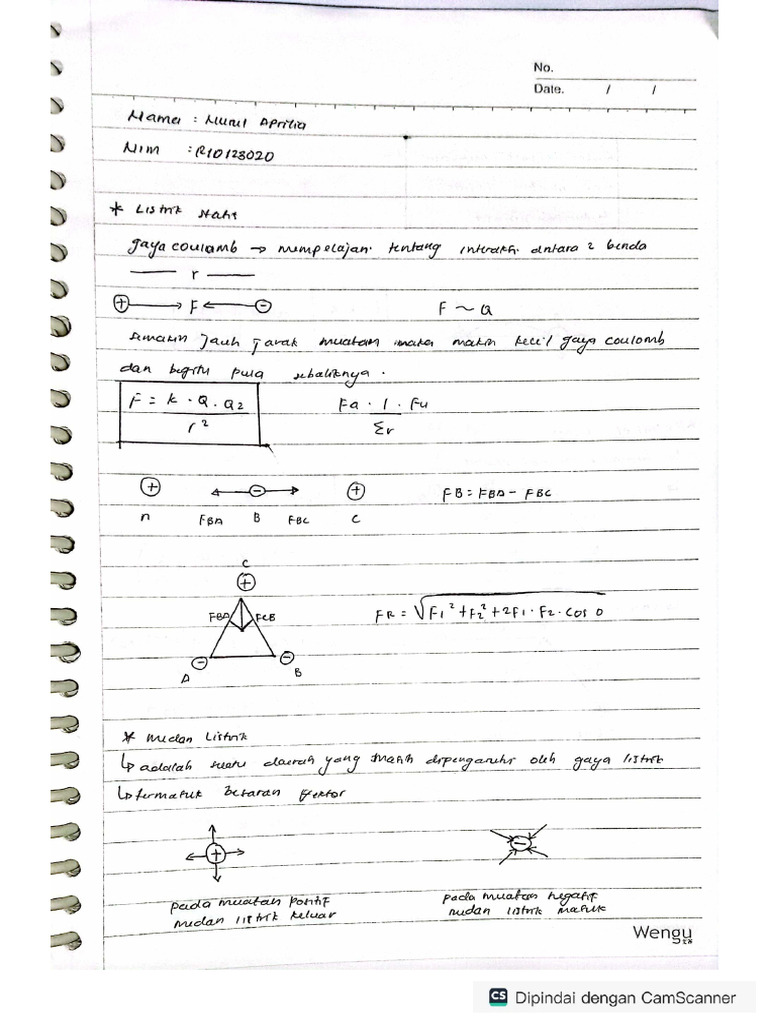 No.
Date. / /
Nama : Nurul Aprilia
NIM : R10123020
* Listrik statis
gaya coulomb → mempelajari tentang interaksi antara 2 benda
r
+ → F ← -
F ~ Q
semakin jauh jarak muatan maka makin kecil gaya coulomb
dan begitu pula sebaliknya.
F = k . Q . Q2
r²
Fa . 1 . Fu
Σr
+ ← - → +
FB = FBA - FBC
A FBA B FBC C
C
+
FBA FCB
FR = √F1² + F2² + 2F1 . F2 . cos θ
- -
A B
* medan listrik
↳ adalah suatu daerah yang masih dipengaruhi oleh gaya listrik
↳ termasuk besaran vektor
+ -
pada muatan positif
medan listrik keluar
pada muatan negatif
medan listrik masuk
Wengu
CS Dipindai dengan CamScanner